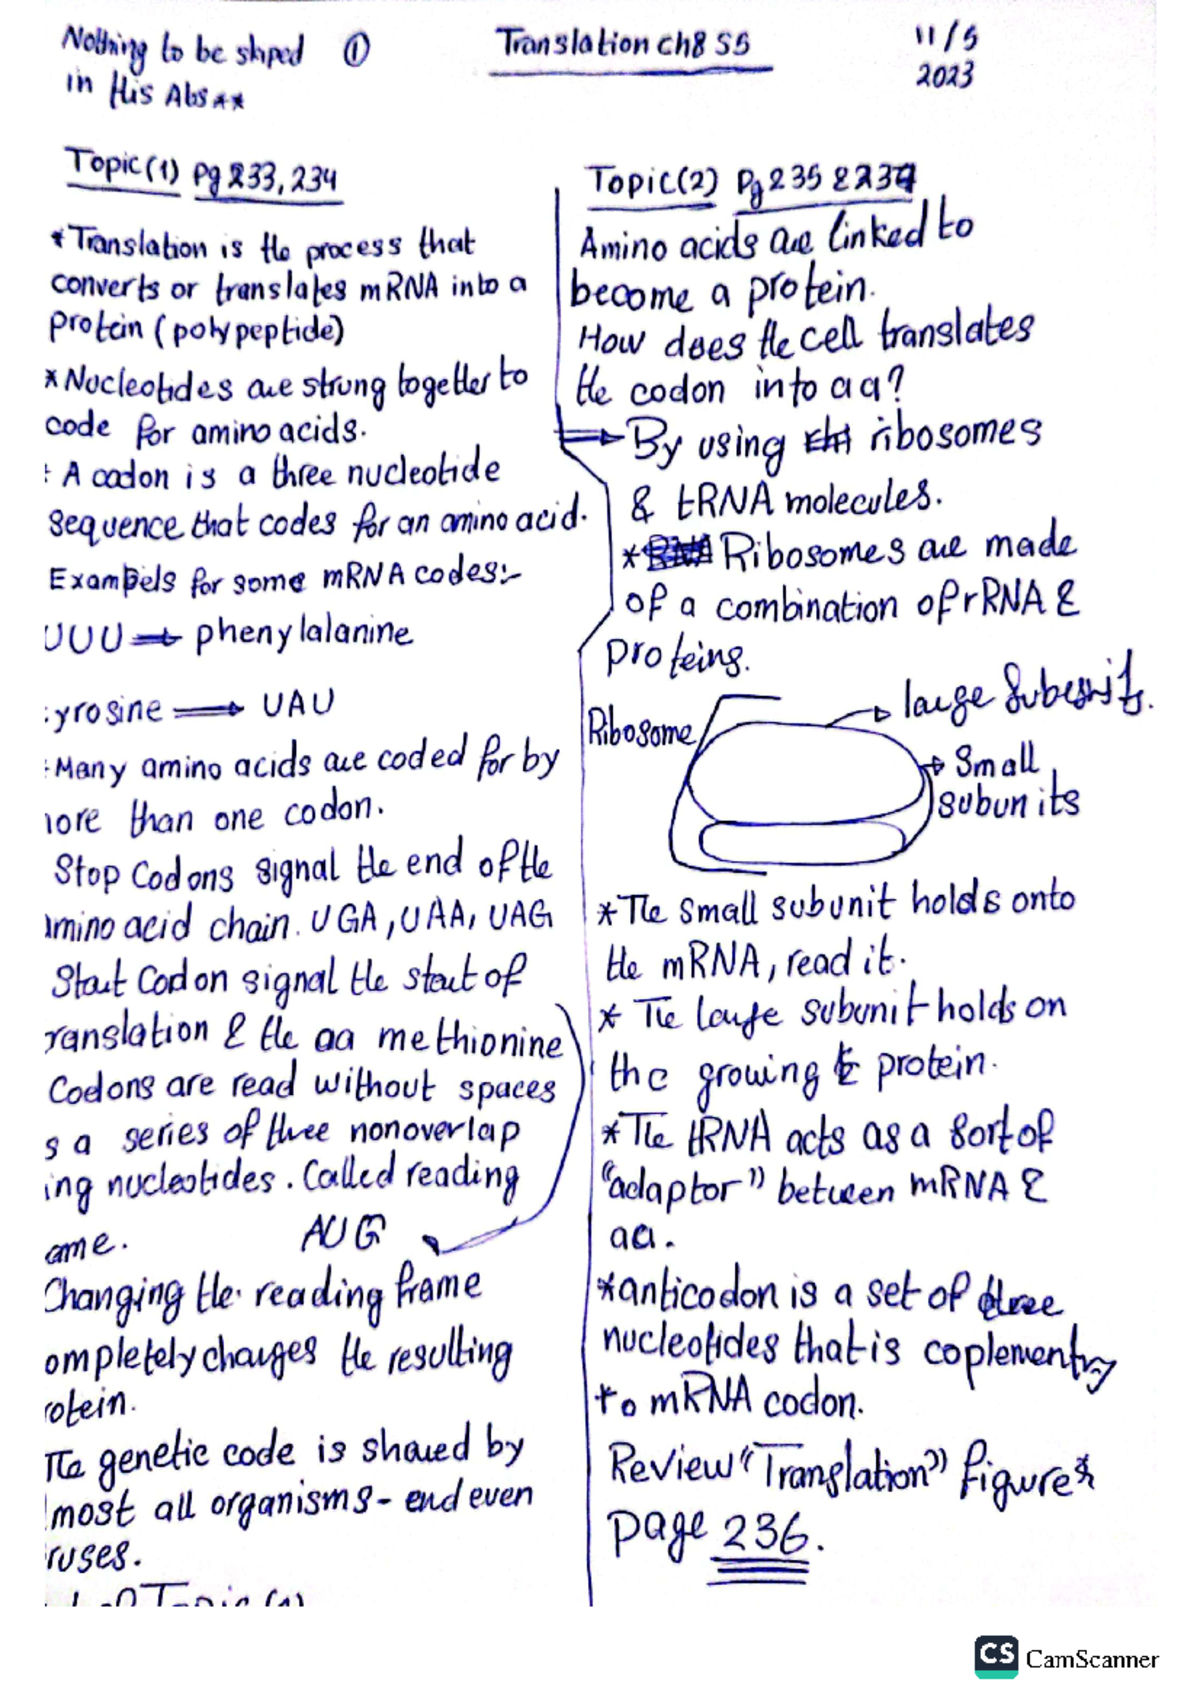 Nothing to be skiped ① Translation ch8 S5 11/5
in His Abs** 2023
Topic(1) pg 233, 234
*Translation is the process that
converts or translates mRNA into a
protein (polypeptide)
*Nucleotides are strung together to
code for amino acids.
: A codon is a three nucleotide
sequence that codes for an amino acid.
Exampels for some mRNA codes:-
UUU → phenylalanine
:yrosine → UAU
:Many amino acids are coded for by
nore than one codon.
Stop Codons signal the end of the
amino acid chain. UGA, UAA, UAG
Start Codon signal the start of
ranslation & the aa methionine
Codons are read without spaces
s a series of three nonoverlap
ing nucleotides. Called reading
ame. AUG
Changing the reading frame
ompletely changes the resulting
rotein.
The genetic code is shared by
lmost all organisms - end even
ruses.
Topic(2) Pg 235 & 237
Amino acids are linked to
become a protein.
How does the cell translates
the codon into aa?
→ By using ribosomes
& tRNA molecules.
* Ribosomes are made
of a combination of rRNA &
proteins.
Ribosome
→ large Subunits.
→ Small
subunits
*The small subunit holds onto
the mRNA, read it.
* The large subunit holds on
the growing protein.
*The tRNA acts as a sort of
"adaptor" between mRNA &
aa.
*anticodon is a set of three
nucleotides that is coplementry
to mRNA codon.
Review "Translation" figure*
page 236.
CS CamScanner